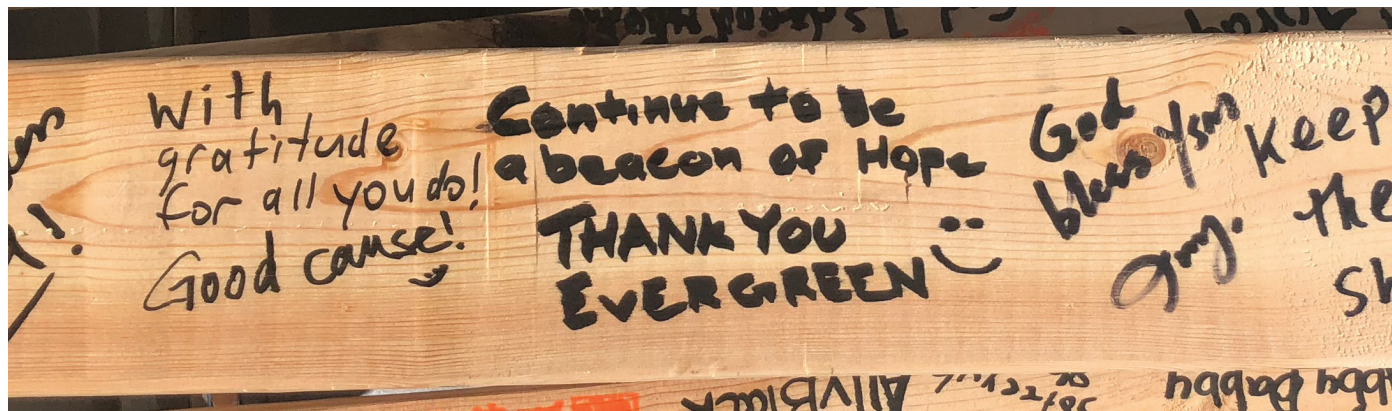 With
gratitude
for all you do!
Good cause!
Continue to be
a beacon of Hope
THANK YOU
EVERGREEN
God
bless You
Keep
the